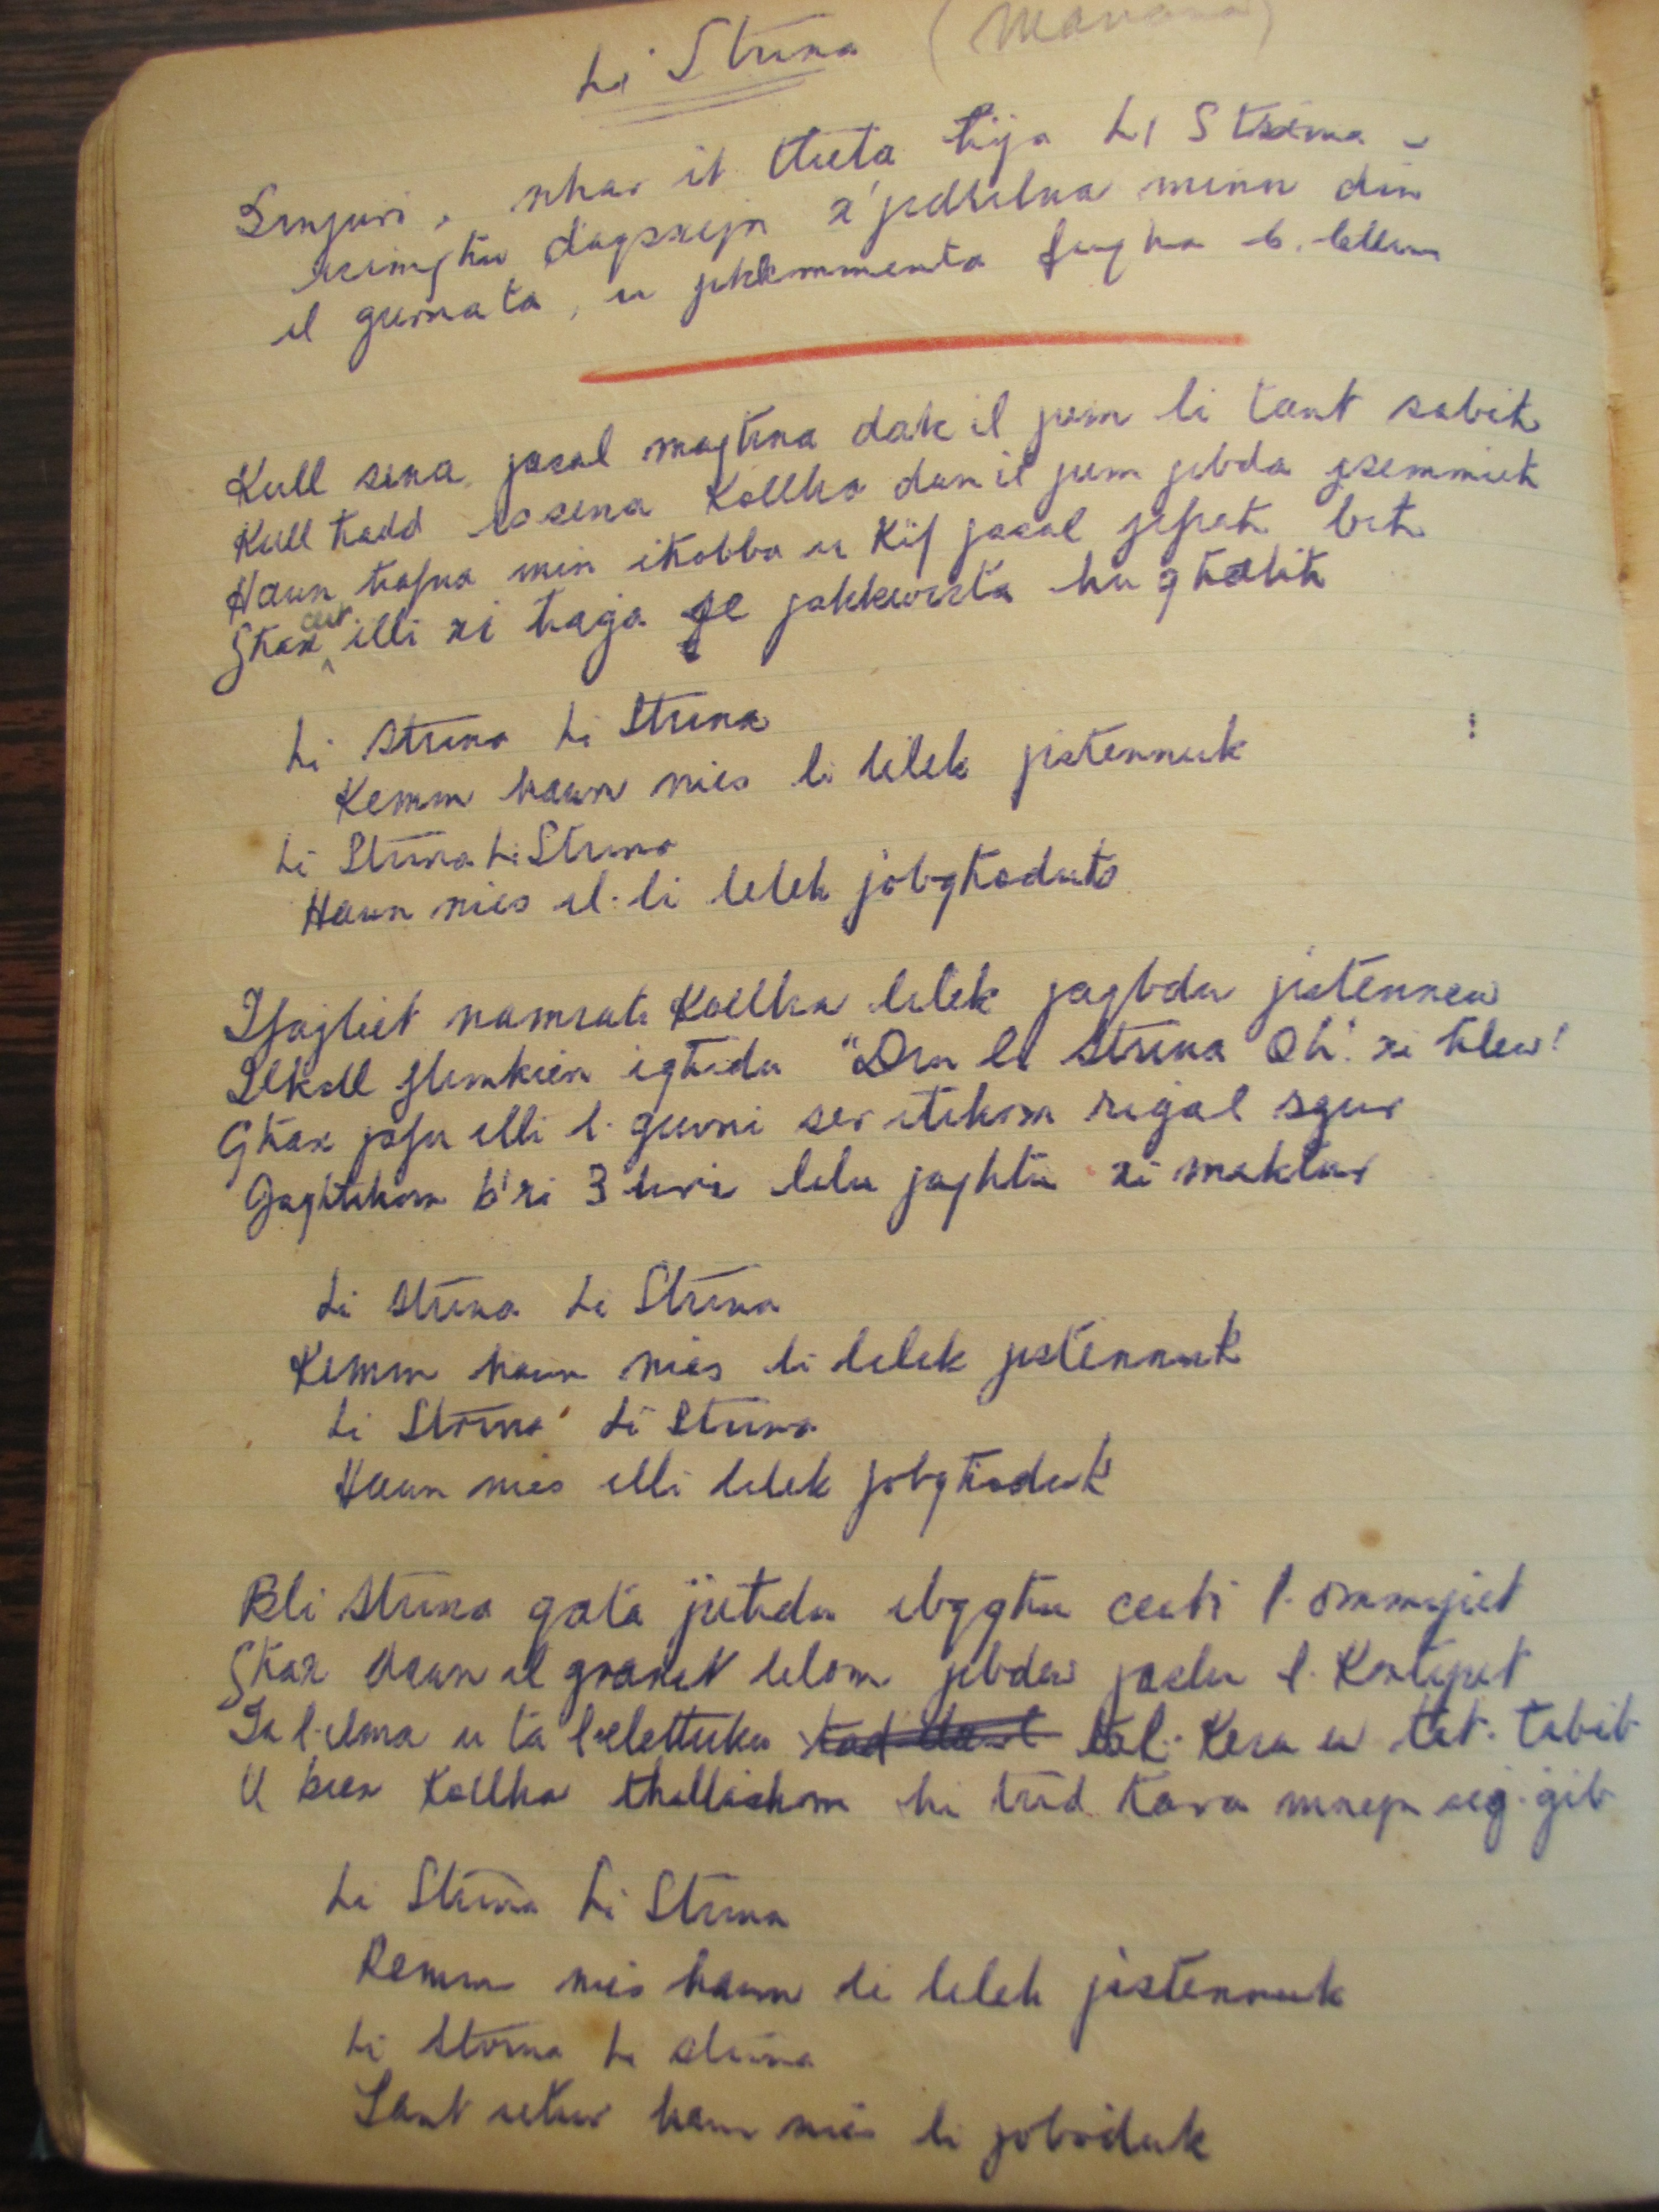 Li Struna
Sinjuri, nhar it tlieta tija Li Struna -
dagsxejn x'jedhilna minn din
il gurnata, u
Kull sena jasal maghna dak il jum li tant sabih
Kull hadd issena Kollha dan il jum jibda jsemmieh
Hawn hafna min ihobbu u Kif jasal jifrah bih
Ghax cert illi xi haga hu ghalih
Li Struna Li Struna
Kemm hawn nies li lilek jistennuk
Li Struna Li Struna
Hawn nies il-li lilek jobghoduk
Ifagliet namrati Kollha lilek jagbdu jistennew
Ilkoll flimkien ighidu "Din li Struna Oh! xi hlew!
Ghax jafu illi l-guvni ser itihom rigal sgur
Jaghtihom b'xi 3 liri lilu jaghtu xi maktur
Li Struna Li Struna
Kemm hawn nies li lilek jistennuk
Li Struna Li Struna
Hawn nies illi lilek jobghoduk
Bli Struna qatā jiehdu l-ommijiet
Ghax hawn il granet lilom jibdew jaslu l-Kontijiet
Ta l-ilma u ta l-elettriku tal-Kera u tat-tabib
U biex Kollha thallashom li trid tara mnejn sig-gib
Li Struna Li Struna
Kemm nies hawn li lilek jistennuk
Li Struna Li Struna
Tant iehor hawn nies li joboduk